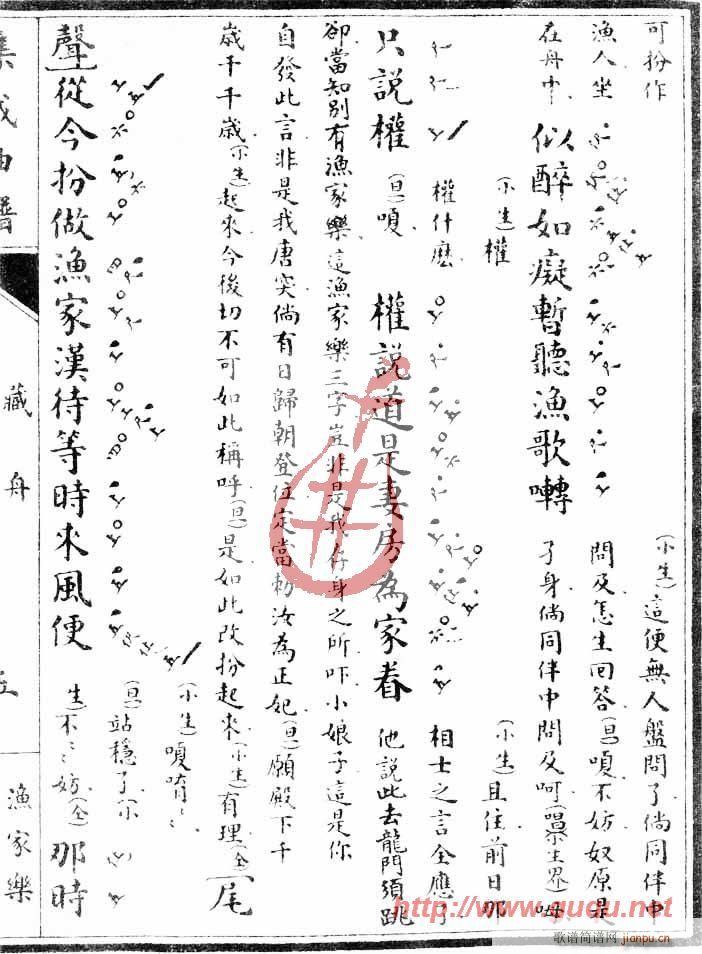 可扮作
漁人坐
在舟中
似醉如癡暫聽漁歌囀
(小生)這便無人盤問了倘同伴中
問及怎生回答(旦)嗄不妨奴原是
孑身倘同伴中問及呵
(小生)權
權什麽
(小生)且住前日那
相士之言全應了
只說權
(旦)嗄
權說道是妻房為家眷
他說此去龍門須跳
卻當知別有漁家樂這漁家樂三字豈非是我存身之所吓小娘子這是你
自發此言非是我唐突倘有日歸朝登位定當勅汝為正妃(旦)願殿下千
歲千千歲(小生)起來今後切不可如此稱呼(旦)是如此改扮起來(小生)有理(仝)尾
聲從今扮做漁家漢待等時來風便
(小生)嗄唷
(旦)站穩了(小
生)不妨(仝)
那時
集成曲譜
藏舟
漁家樂
http://www.ququ.net
歌谱简谱网 jianpu.cn